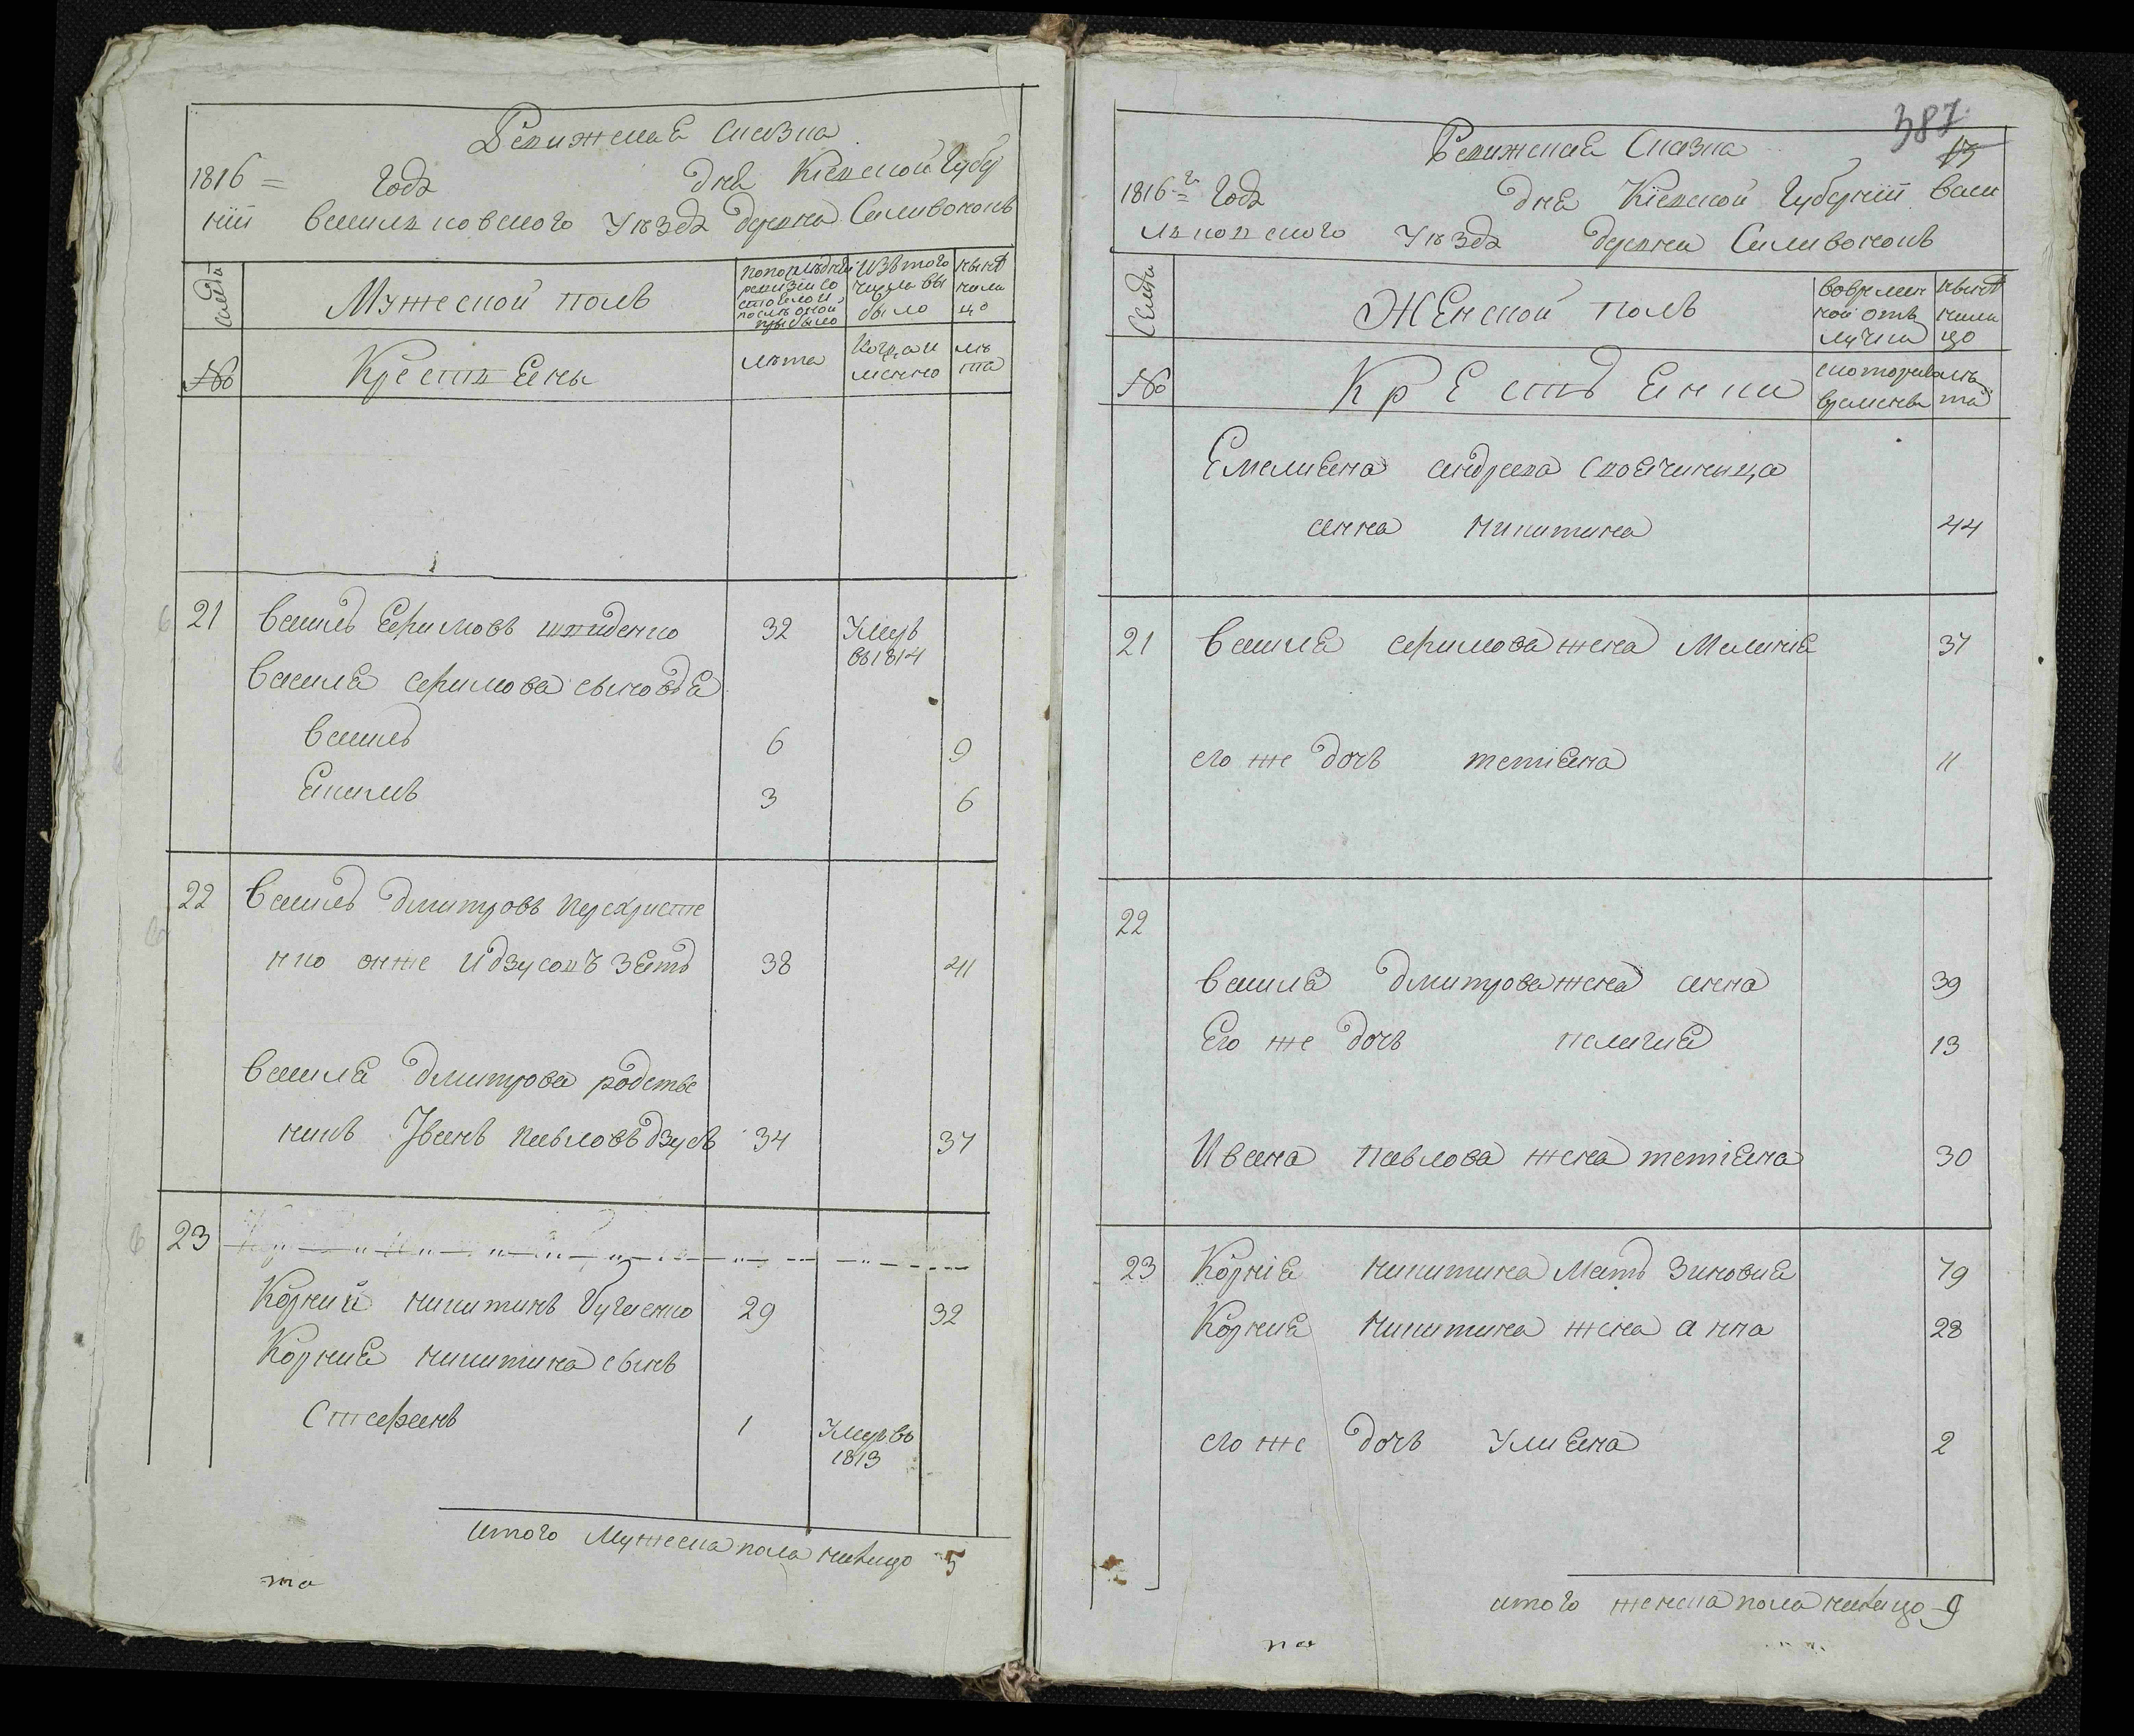 Ревижская сказка
1816 = года дня Кіевской губер
ніи василковского уезда деревни Саливонокъ
Семьи
Мужеской полъ
По последней ревизіи состояло и после оной прибыло
Изъ того числа выбыло
ныне налицо
№
Крестяне
лета
Когда именно
лета
21 василь Ефимовъ 32 Умеръ
въ 1814
василя ефимова сыновья
василь 6 9
Екимъ 3 6
22 василь дмитровъ Перехристе
нко онже и дзусовъ Зять 38 41
василя дмитрова родстве
никъ Іванъ павловъ дзусь 34 37
23
Корній никитинъ Бугаенко 29 32
Корнія никитина сынъ
Стефанъ 1 Умеръ въ
1813
итого мужеска пола налицо 5
та
387
13
Ревижская Сказка
1816 = г. года дня Кіевской Губерніи васи
лковского уезда деревни Саливонокъ
Семьи
Женской полъ
во времен
ной отъ
лучки
ныне
нали
цо
№
Крестянки
скоторого
времены
ле
та
Емелияна андреева своячиныца
анна никитина 44
21 василя ефимова жена Меланія 37
его же дочь тетіяна 11
22
василя дмитрова жена анна 39
Его же дочь палагия 13
Ивана павлова жена тетіяна 30
23 Корнія никитина мать Зиновия 79
Корния никитина жена анна 28
его же дочь улияна 2
итого женска пола налицо 9
на